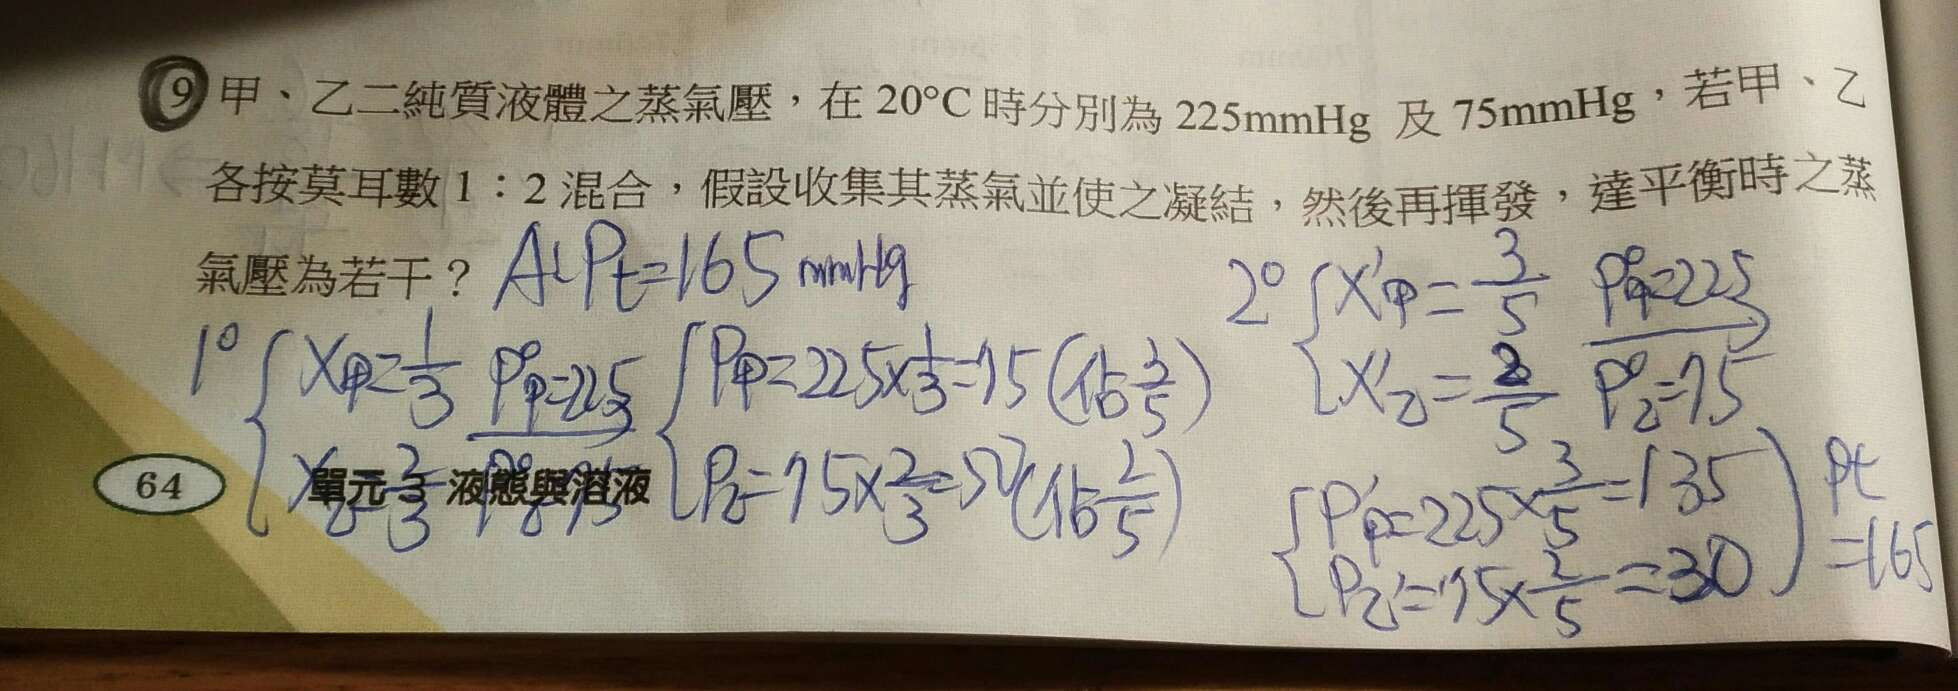 9 甲、乙二純質液體之蒸氣壓，在 20°C 時分別為 225mmHg 及 75mmHg，若甲、乙
各按莫耳數 1：2 混合，假設收集其蒸氣並使之凝結，然後再揮發，達平衡時之蒸
氣壓為若干？ A: Pt=165 mmHg
1° { X甲=1/3 P°甲=225
X乙=2/3 P°乙=75
{ P甲=225×1/3=75 (佔3/5)
P乙=75×2/3=50 (佔2/5)
2° { X'甲=3/5 P°甲=225
X'乙=2/5 P°乙=75
{ P'甲=225×3/5=135
P乙'=75×2/5=30 ) Pt
=165
64 單元 液態與溶液